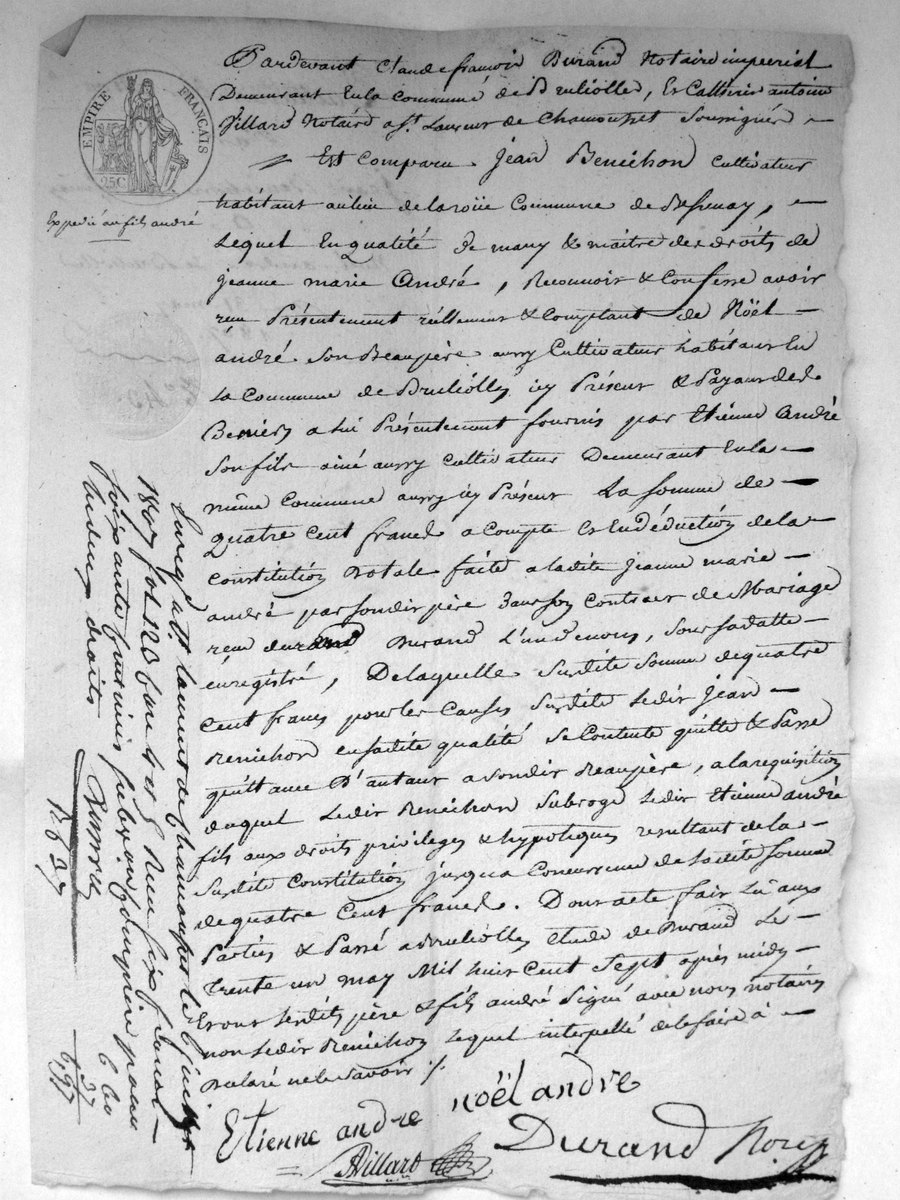 EMPIRE FRANÇAIS
25C
Expedié au fils andré
Pardevant Claude françois Durand Notaire imperial
Demeurant En la Commune de Bruliolle, Et Catherin antoine
Villard Notaire a St. Laurent de Chamousset Soussignés
Est Comparu Jean Benichon Cultivateur
habitant au lieu de la roüe Commune de Bessenay,
Lequel En qualité De mary & maitre des droits de
jeanne marie André, Reconnoit & Confesse avoir
reçu Présentement réellement & Comptant de Nöel
andré Son Beaupère aussy Cultivateur habitant En
la Commune de Brulliolles icy Présent & Payant des
Deniers a lui Présentement fournis par Etienne André
Son fils ainé aussy Cultivateur Demeurant En la
même Commune aussy icy Présent La Somme de
Quatre Cent francs a Compte Et En déduction de la
Constitution Dotale faite a ladite Jeanne marie
andré par Son dit père Dans Son Contrat de Mariage
reçu Durand L'un de nous, Sous Sa datte
enregistré, De laquelle Susdite Somme de quatre
Cent francs pour les Causes Susdite Ledit Jean
Benichon en Sadite qualité Se Contente quitte & Passe
quittance D'autant a Son dit Beaupère, a la requisition
duquel Ledit Benichon Subroge Ledit Etienne andré
fils aux droits privileges & hypoteques resultant de la
Susdite Constitution jusqu'a Concurrence de ladite Somme
de quatre Cent francs. Dont acte fait Lu aux
Parties & Passé a Brulliolles etude de Durand Le
trente un may Mil huit Cent Sept après midy
Et ont Lesdits père & fils andré Signé avec nous notaires
non Ledit Benichon Lequel interpellé de le faire à
Declaré ne le Savoir ./.
Etienne andre nöel andre
AVillard Durand Nore
Enregé. a St. laurent de chamousset le 6 juin
1807 fol. 120 Reçu six francs
soixante centimes